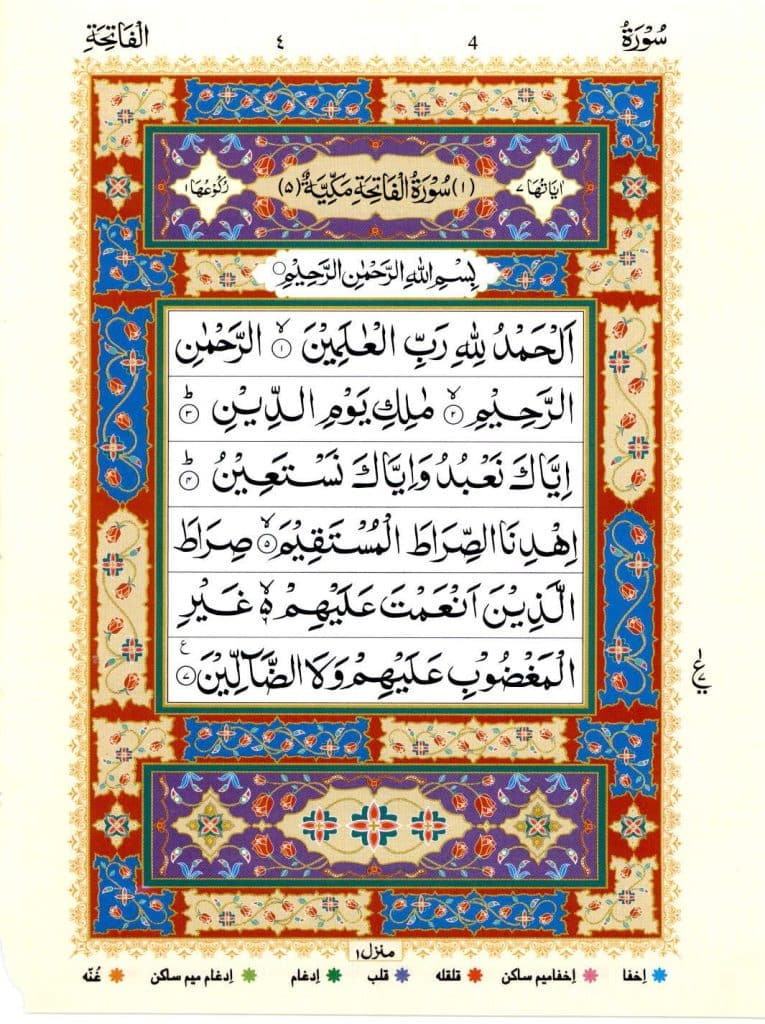 سُوْرَةُ 4 ٤ الْفَاتِحَةِ
اٰيَاتُهَا ٧ (١) سُوْرَةُ الْفَاتِحَةِ مَكِّيَّةٌ (٥) رُكُوْعُهَا ١
بِسْمِ اللهِ الرَّحْمٰنِ الرَّحِيْمِ ○
اَلْحَمْدُ لِلّٰهِ رَبِّ الْعٰلَمِيْنَ ۙ ١ الرَّحْمٰنِ
الرَّحِيْمِ ۙ ٢ مٰلِكِ يَوْمِ الدِّيْنِ ؕ ٣
اِيَّاكَ نَعْبُدُ وَاِيَّاكَ نَسْتَعِيْنُ ؕ ٤
اِهْدِنَا الصِّرَاطَ الْمُسْتَقِيْمَ ۙ ٥ صِرَاطَ
الَّذِيْنَ اَنْعَمْتَ عَلَيْهِمْ ۙ۬ ە غَيْرِ
الْمَغْضُوْبِ عَلَيْهِمْ وَلَا الضَّآلِّيْنَ ٧ ع
ع ١ ٧
منزل ١
اِخفا اِخفامیم ساکن قلقله قلب اِدغام اِدغام میم ساکن غُنّه